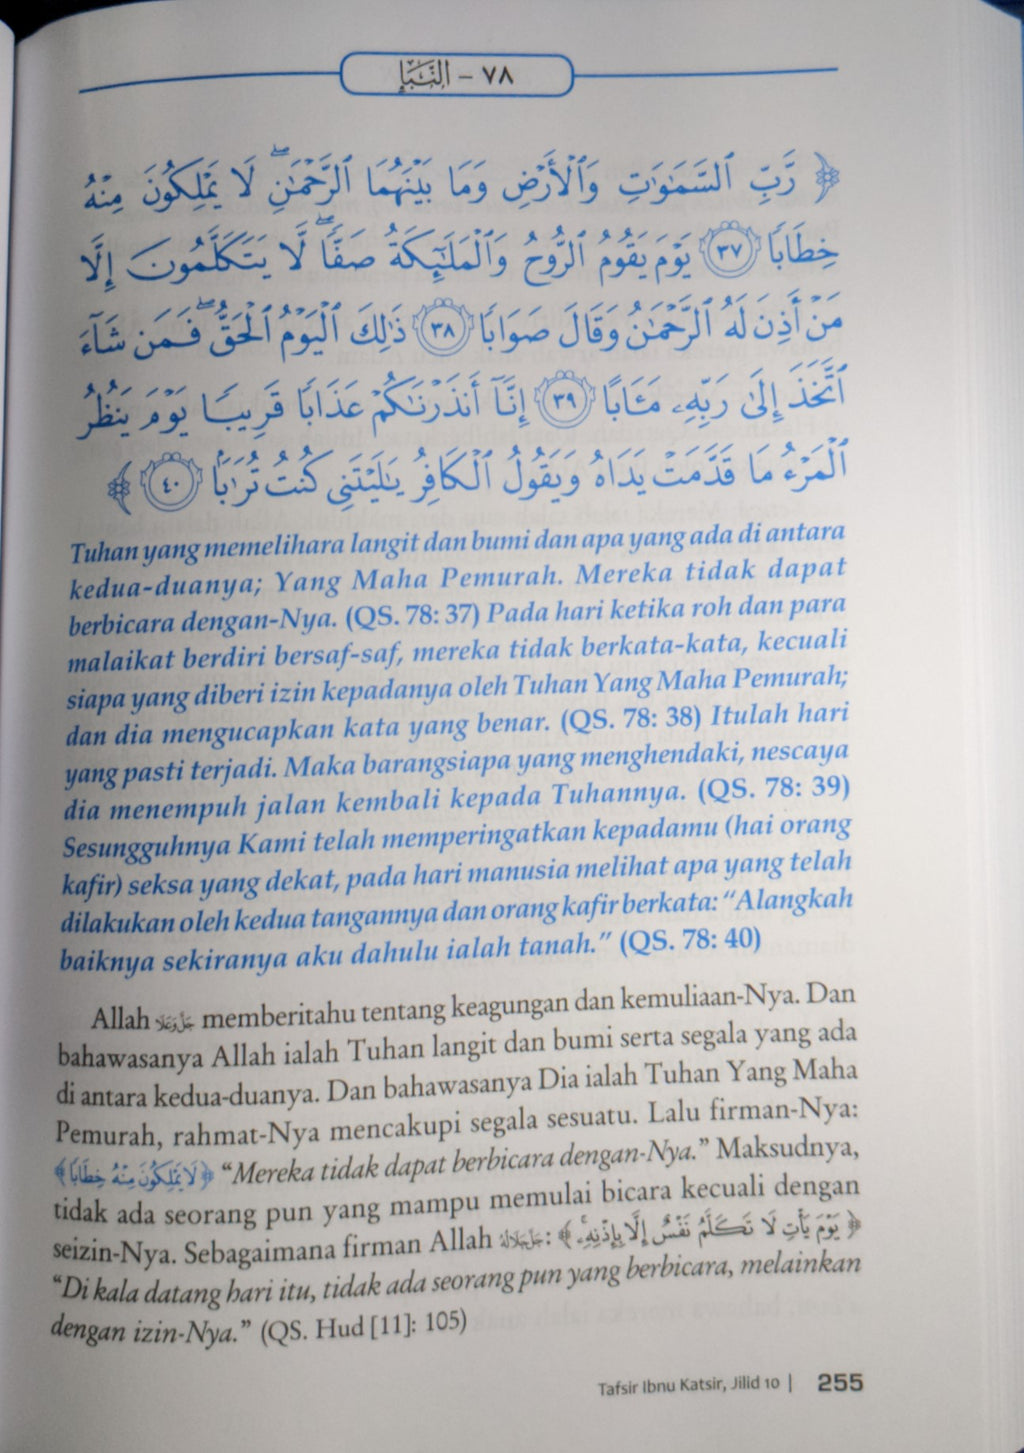 ٧٨ – النَّبَإِ
﴿ رَّبِّ ٱلسَّمَٰوَٰتِ وَٱلْأَرْضِ وَمَا بَيْنَهُمَا ٱلرَّحْمَٰنِ ۖ لَا يَمْلِكُونَ مِنْهُ
خِطَابًا ٣٧ يَوْمَ يَقُومُ ٱلرُّوحُ وَٱلْمَلَٰٓئِكَةُ صَفًّا ۖ لَّا يَتَكَلَّمُونَ إِلَّا
مَنْ أَذِنَ لَهُ ٱلرَّحْمَٰنُ وَقَالَ صَوَابًا ٣٨ ذَٰلِكَ ٱلْيَوْمُ ٱلْحَقُّ ۖ فَمَن شَآءَ
ٱتَّخَذَ إِلَىٰ رَبِّهِۦ مَـَٔابًا ٣٩ إِنَّآ أَنذَرْنَٰكُمْ عَذَابًا قَرِيبًا يَوْمَ يَنظُرُ
ٱلْمَرْءُ مَا قَدَّمَتْ يَدَاهُ وَيَقُولُ ٱلْكَافِرُ يَٰلَيْتَنِى كُنتُ تُرَٰبًۢا ٤٠ ﴾
Tuhan yang memelihara langit dan bumi dan apa yang ada di antara
kedua-duanya; Yang Maha Pemurah. Mereka tidak dapat
berbicara dengan-Nya. (QS. 78: 37) Pada hari ketika roh dan para
malaikat berdiri bersaf-saf, mereka tidak berkata-kata, kecuali
siapa yang diberi izin kepadanya oleh Tuhan Yang Maha Pemurah;
dan dia mengucapkan kata yang benar. (QS. 78: 38) Itulah hari
yang pasti terjadi. Maka barangsiapa yang menghendaki, nescaya
dia menempuh jalan kembali kepada Tuhannya. (QS. 78: 39)
Sesungguhnya Kami telah memperingatkan kepadamu (hai orang
kafir) seksa yang dekat, pada hari manusia melihat apa yang telah
dilakukan oleh kedua tangannya dan orang kafir berkata: “Alangkah
baiknya sekiranya aku dahulu ialah tanah.” (QS. 78: 40)
Allah جل وعلا memberitahu tentang keagungan dan kemuliaan-Nya. Dan
bahawasanya Allah ialah Tuhan langit dan bumi serta segala yang ada
di antara kedua-duanya. Dan bahawasanya Dia ialah Tuhan Yang Maha
Pemurah, rahmat-Nya mencakupi segala sesuatu. Lalu firman-Nya:
﴿ لَا يَمْلِكُونَ مِنْهُ خِطَابًا ﴾ “Mereka tidak dapat berbicara dengan-Nya.” Maksudnya,
tidak ada seorang pun yang mampu memulai bicara kecuali dengan
seizin-Nya. Sebagaimana firman Allah جل جلاله: ﴿ يَوْمَ يَأْتِ لَا تَكَلَّمُ نَفْسٌ إِلَّا بِإِذْنِهِۦ ۚ ﴾
“Di kala datang hari itu, tidak ada seorang pun yang berbicara, melainkan
dengan izin-Nya.” (QS. Hud [11]: 105)
Tafsir Ibnu Katsir, Jilid 10 | 255